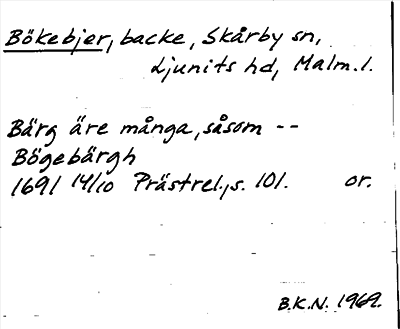 Bökebjer, backe, Skårby sn,
Ljunits hd, Malm. l.
Bärg äre många, såsom --
Bögebärgh
1691 14/10 Prästrel., s. 101. or.
B.K.N. 1969.